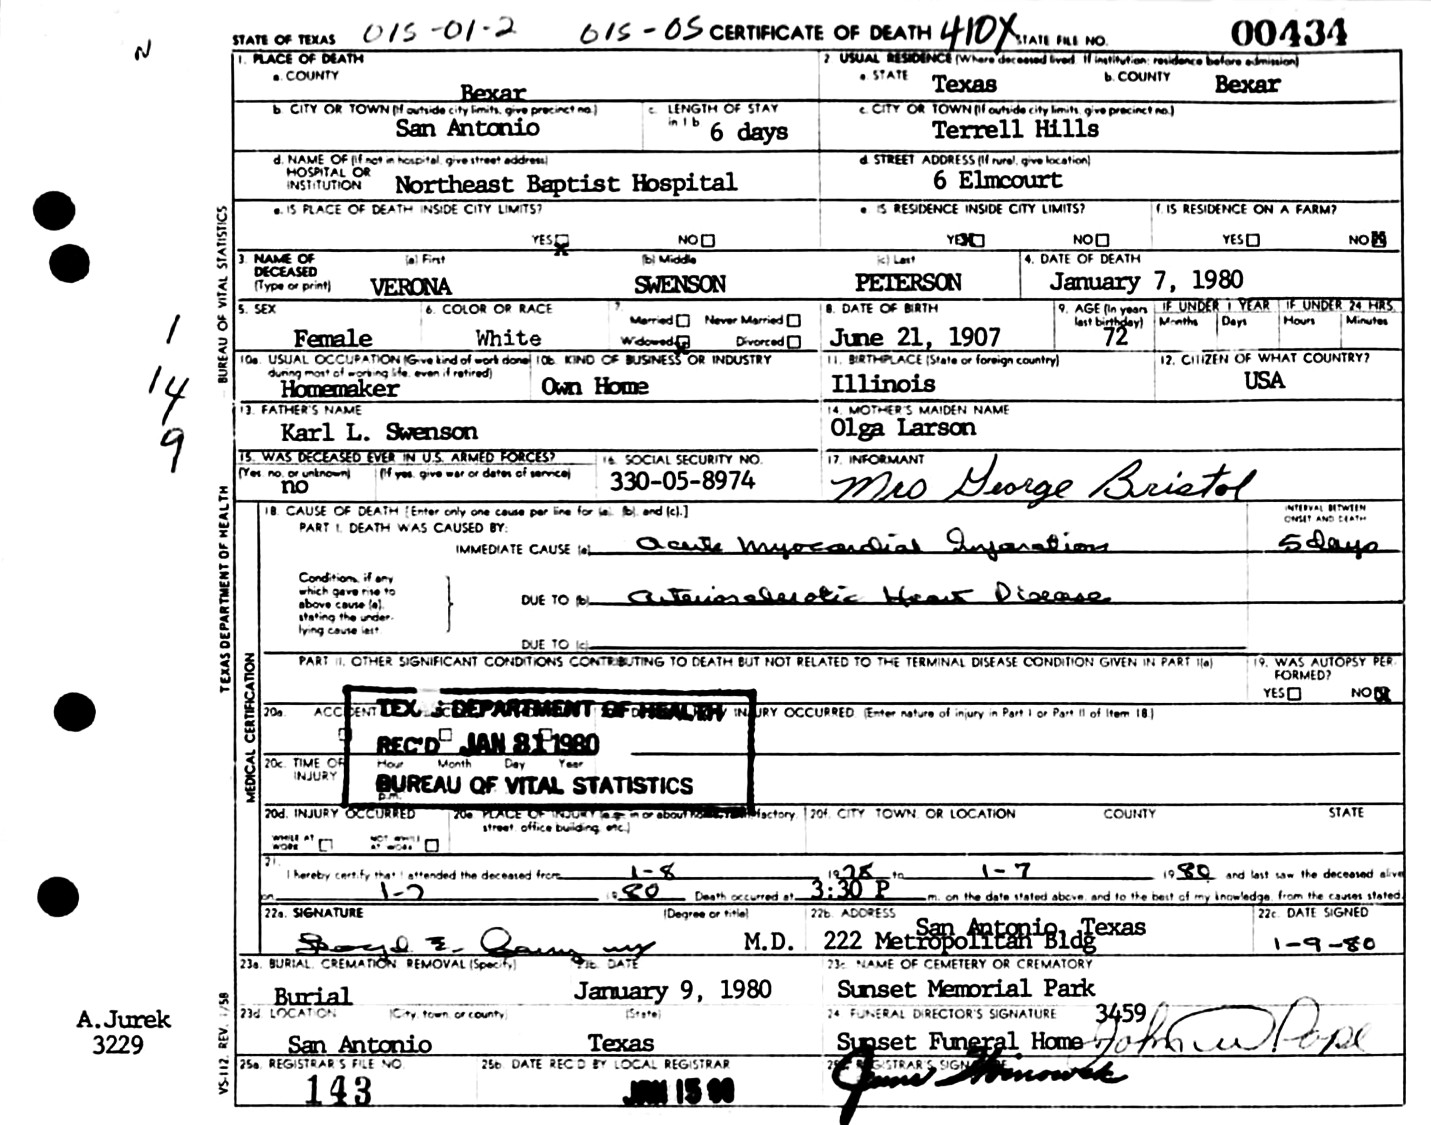 N
STATE OF TEXAS 015-01-2 015-05 CERTIFICATE OF DEATH 410X STATE FILE NO. 00434
1. PLACE OF DEATH
a. COUNTY
Bexar
2. USUAL RESIDENCE (Where deceased lived. If institution: residence before admission)
a. STATE Texas b. COUNTY Bexar
b. CITY OR TOWN (If outside city limits, give precinct no.)
San Antonio
c. LENGTH OF STAY
in 1 b 6 days
c. CITY OR TOWN (If outside city limits, give precinct no.)
Terrell Hills
d. NAME OF (If not in hospital, give street address)
HOSPITAL OR
INSTITUTION Northeast Baptist Hospital
d. STREET ADDRESS (If rural, give location)
6 Elmcourt
e. IS PLACE OF DEATH INSIDE CITY LIMITS?
YES NO
e. IS RESIDENCE INSIDE CITY LIMITS?
YES NO
f. IS RESIDENCE ON A FARM?
YES NO
3. NAME OF
DECEASED
(Type or print)
(a) First
VERONA
(b) Middle
SWENSON
(c) Last
PETERSON
4. DATE OF DEATH
January 7, 1980
5. SEX
Female
6. COLOR OR RACE
White
7.
Married Never Married
Widowed Divorced
8. DATE OF BIRTH
June 21, 1907
9. AGE (In years
last birthday)
72
IF UNDER 1 YEAR IF UNDER 24 HRS.
Months Days Hours Minutes
10a. USUAL OCCUPATION (Give kind of work done
during most of working life, even if retired)
Homemaker
10b. KIND OF BUSINESS OR INDUSTRY
Own Home
11. BIRTHPLACE (State or foreign country)
Illinois
12. CITIZEN OF WHAT COUNTRY?
USA
13. FATHER'S NAME
Karl L. Swenson
14. MOTHER'S MAIDEN NAME
Olga Larson
15. WAS DECEASED EVER IN U.S. ARMED FORCES?
(Yes, no, or unknown) (If yes, give war or dates of service)
no
16. SOCIAL SECURITY NO.
330-05-8974
17. INFORMANT
Mrs George Bristol
1
14
9
18. CAUSE OF DEATH [Enter only one cause per line for (a), (b), and (c).]
PART I. DEATH WAS CAUSED BY:
IMMEDIATE CAUSE (a) Acute Myocardial Infarction
INTERVAL BETWEEN
ONSET AND DEATH
5 days
Conditions, if any
which gave rise to
above cause (a),
stating the under-
lying cause last.
DUE TO (b) Arteriosclerotic Heart Disease
DUE TO (c)
PART II. OTHER SIGNIFICANT CONDITIONS CONTRIBUTING TO DEATH BUT NOT RELATED TO THE TERMINAL DISEASE CONDITION GIVEN IN PART I(a)
19. WAS AUTOPSY PER-
FORMED?
YES NO
20a. ACCIDENT INJURY OCCURRED. (Enter nature of injury in Part I or Part II of Item 18.)
DEPARTMENT OF HEALTH
REC'D JAN 31 1980
BUREAU OF VITAL STATISTICS
20c. TIME OF
INJURY
Hour Month Day Year
p.m.
20d. INJURY OCCURRED
WHILE AT
WORK
NOT WHILE
AT WORK
20e. PLACE OF INJURY (e.g. in or about factory,
street, office building, etc.)
20f. CITY, TOWN, OR LOCATION COUNTY STATE
21.
I hereby certify that I attended the deceased from 1-8 1978 to 1-7 1980 and last saw the deceased alive
on 1-7 1980 Death occurred at 3:30 P m. on the date stated above, and to the best of my knowledge, from the causes stated.
22a. SIGNATURE (Degree or title)
M.D.
22b. ADDRESS
San Antonio, Texas
222 Metropolitan Bldg
22c. DATE SIGNED
1-9-80
23a. BURIAL, CREMATION, REMOVAL (Specify)
Burial
23b. DATE
January 9, 1980
23c. NAME OF CEMETERY OR CREMATORY
Sunset Memorial Park
23d. LOCATION (City, town, or county) (State)
San Antonio Texas
24. FUNERAL DIRECTOR'S SIGNATURE
3459
Sunset Funeral Home John W Pope
25a. REGISTRAR'S FILE NO.
143
25b. DATE REC'D BY LOCAL REGISTRAR
JAN 15 80
25c. REGISTRAR'S SIGNATURE
A.Jurek
3229
TEXAS DEPARTMENT OF HEALTH BUREAU OF VITAL STATISTICS
MEDICAL CERTIFICATION
VS-112, REV. 1/58